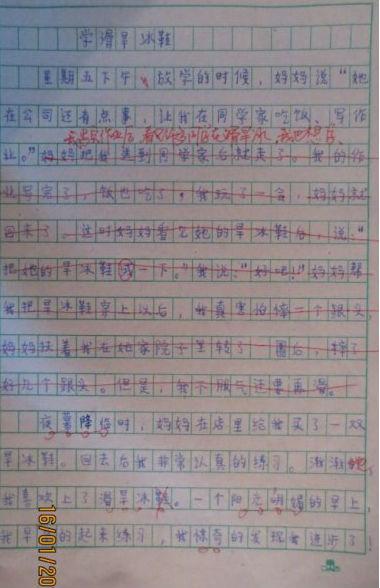 学滑旱冰鞋
星期五下午,放学的时候,妈妈说“她
在公司还有点事,让我在同学家吃饭、写作
业。”妈妈把我送到同学家后就走了。我的作
业写完了,饭也吃了,我玩了一会,妈妈就
回来了。这时妈妈看它她的旱冰鞋后,说:“
把她的旱冰鞋试一下。”我说:“好吧!”妈妈帮
我把旱冰鞋穿上以后,我真害怕摔一个跟头,
妈妈扶着我在她家院子里转了一圈后,摔了
好几个跟头。但是,我不服气还要再滑。
夜幕降临时,妈妈在店里给我买了一双
旱冰鞋。回去后我非常认真的练习。渐渐地,
我喜欢上了滑旱冰鞋。一个阳光明媚的早上,
我早早的起来练习,我惊奇的发现我进步了!
16/01/20